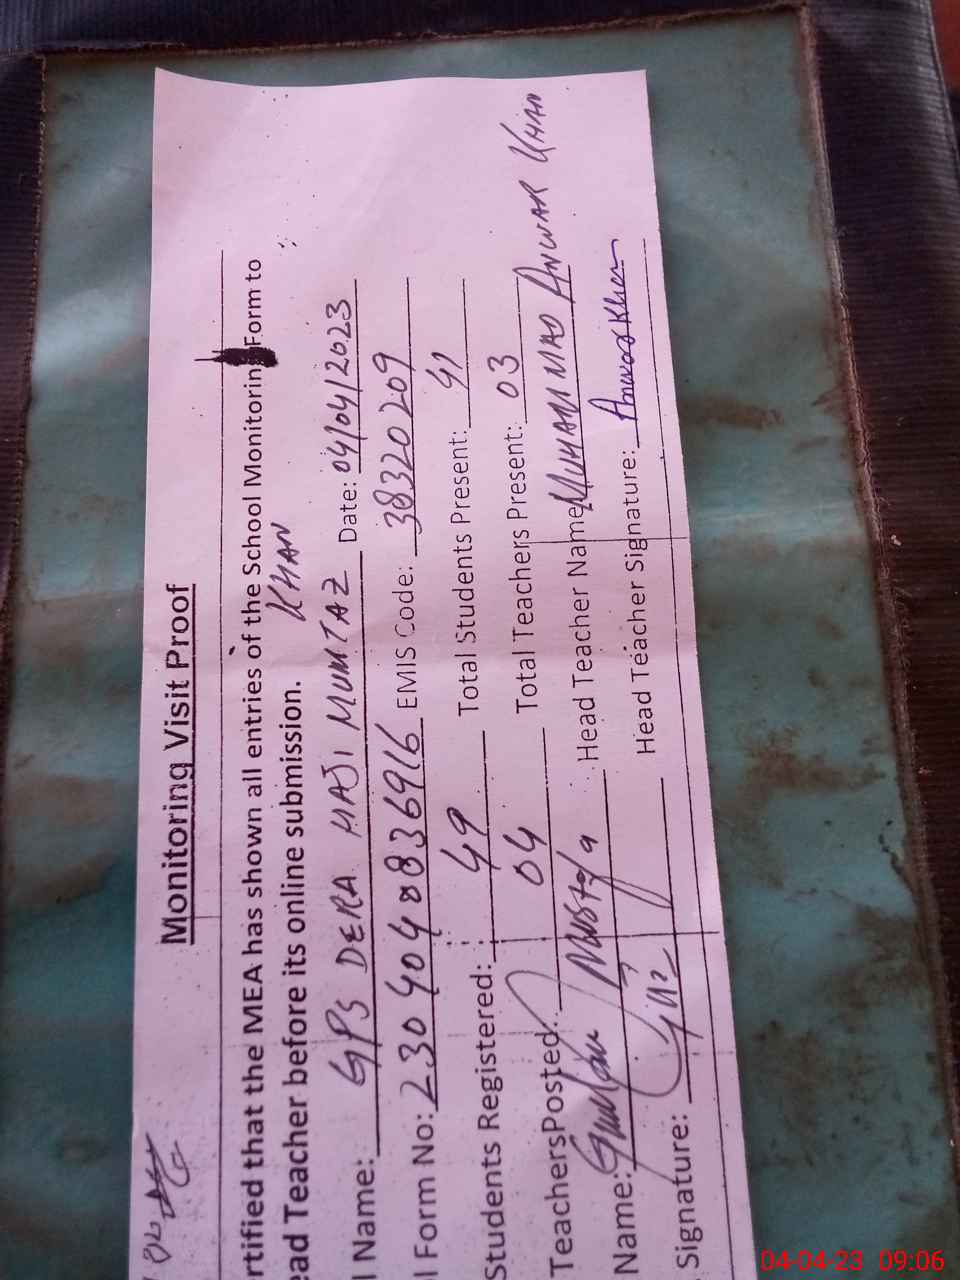 Monitoring Visit Proof
rtified that the MEA has shown all entries of the School Monitorin Form to
ead Teacher before its online submission. KHAN
l Name: GPS DERA HAJI MUMTAZ Date: 04/04/2023
l Form No: 2304040836916 EMIS Code: 38320209
Students Registered: 49 Total Students Present: 41
TeachersPosted: 04 Total Teachers Present: 03
Name: Ghulam Mustafa Head Teacher Name MUHAMMAD ANWAR KHAN
Signature: Head Teacher Signature: Anwar Khan
04-04-23 09:06